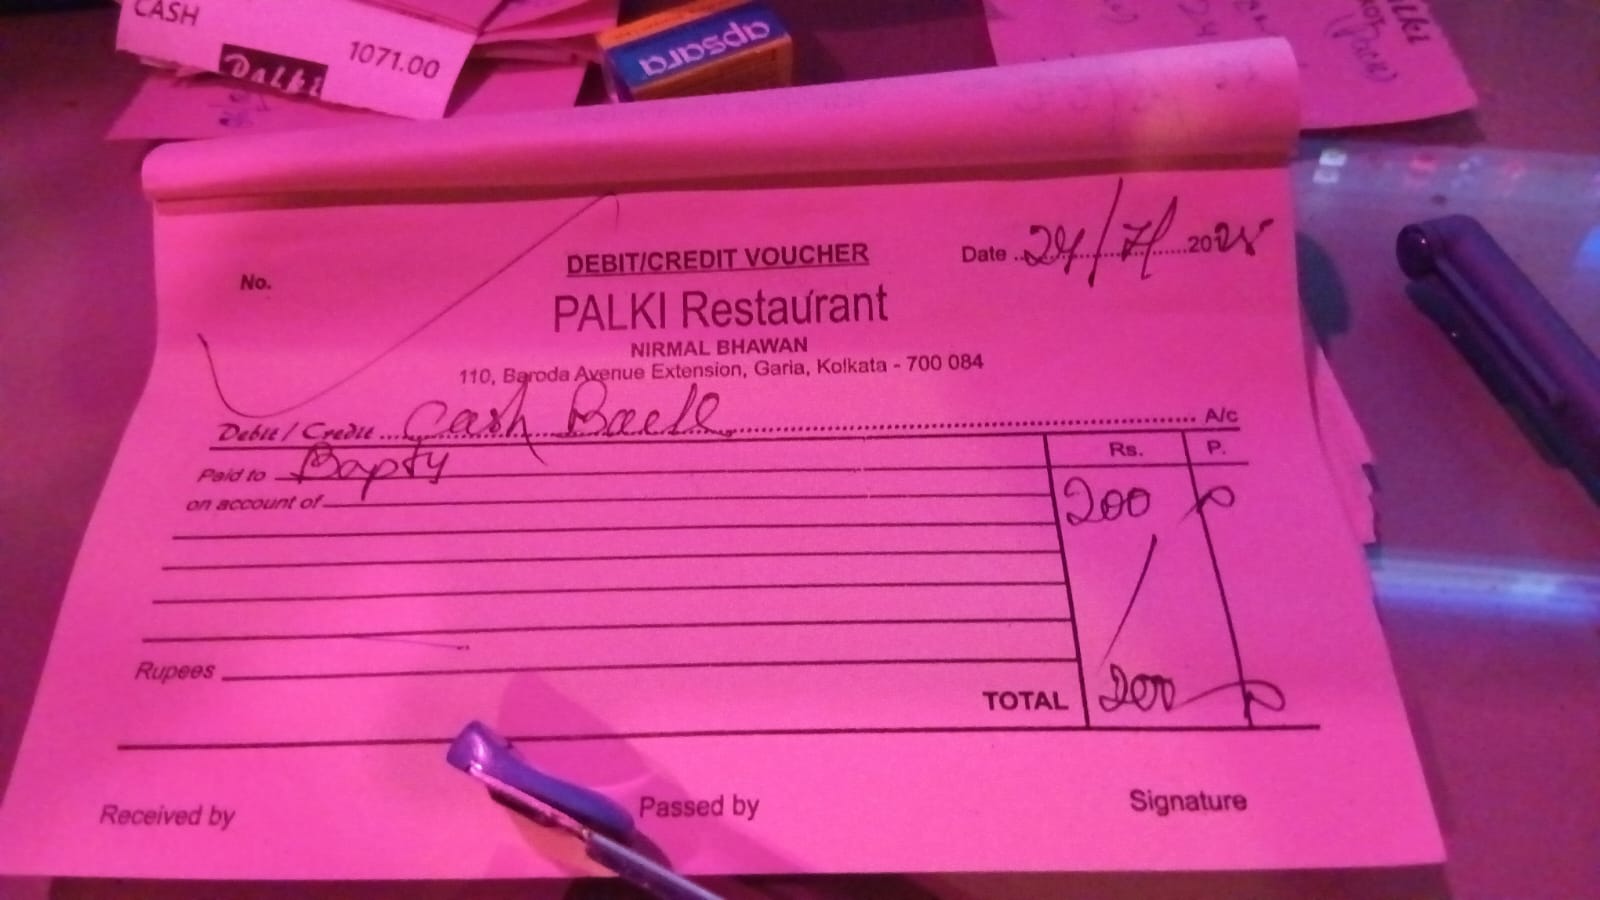 CASH
1071.00
Palki
apsara
DEBIT/CREDIT VOUCHER
No.
Date 24/7/2025
PALKI Restaurant
NIRMAL BHAWAN
110, Baroda Avenue Extension, Garia, Kolkata - 700 084
Debit / Credit Cash Back A/c
Paid to Bapty
Rs. P.
on account of
200
Rupees
TOTAL 200
Received by Passed by Signature